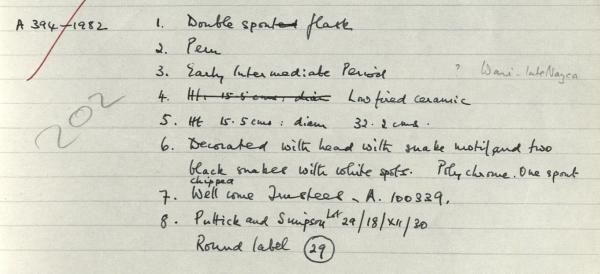 A 394-1982 1. Double spouted flask
2. Peru
3. Early Intermediate Period ? Wari - late Nazca
4. Ht. 15.5 cms; diam Low fired ceramic
202
5. Ht 15.5 cms : diam 32.2 cms.
6. Decorated with head with snake motif and two
black snakes with white spots. Polychrome. One spout
chipped
7. Wellcome Trustees - A. 100339.
8. Puttick and Simpson Lot 29/18/XII/30
Round label 29